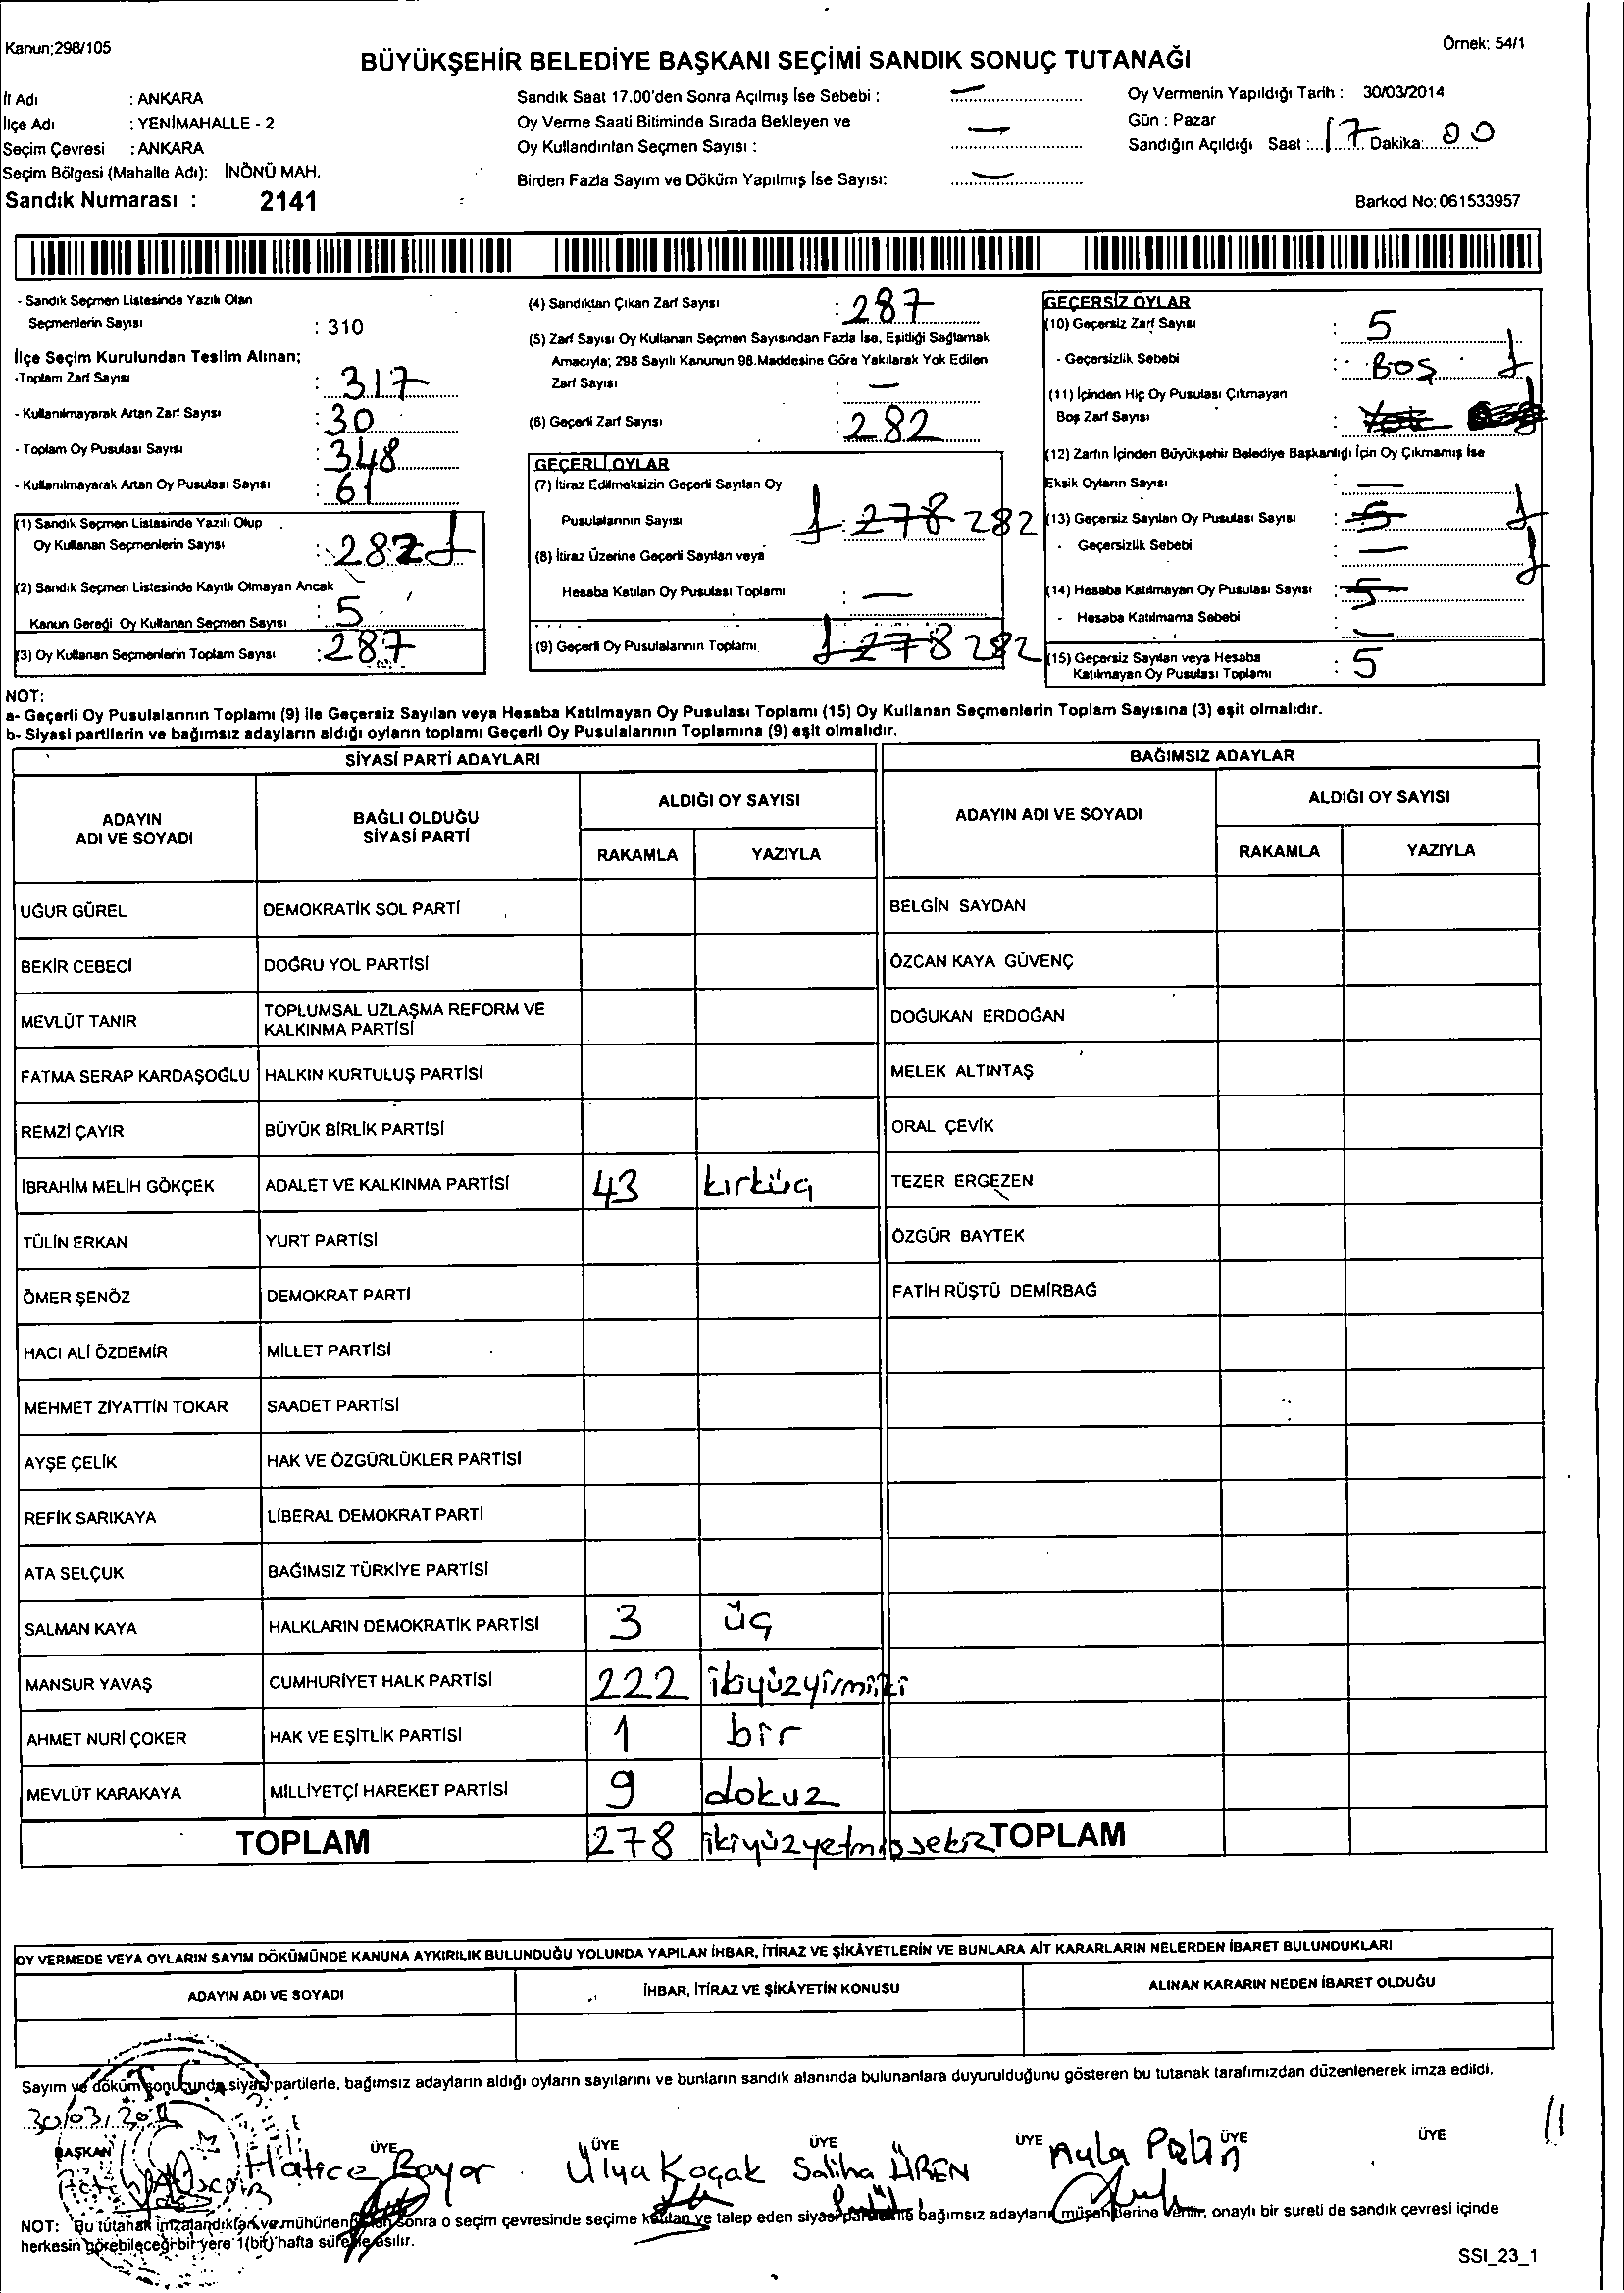 Kanun;298/105
Örnek: 54/1
BÜYÜKŞEHİR BELEDİYE BAŞKANI SEÇİMİ SANDIK SONUÇ TUTANAĞI
İl Adı : ANKARA
İlçe Adı : YENİMAHALLE - 2
Seçim Çevresi : ANKARA
Seçim Bölgesi (Mahalle Adı): İNÖNÜ MAH.
Sandık Numarası : 2141
Sandık Saat 17.00'den Sonra Açılmış İse Sebebi : —
Oy Verme Saati Bitiminde Sırada Bekleyen ve
Oy Kullandırılan Seçmen Sayısı : —
Birden Fazla Sayım ve Döküm Yapılmış İse Sayısı: —
Oy Vermenin Yapıldığı Tarih : 30/03/2014
Gün : Pazar
Sandığın Açıldığı Saat :...17... Dakika:...00
Barkod No: 061533957
- Sandık Seçmen Listesinde Yazılı Olan
Seçmenlerin Sayısı : 310
İlçe Seçim Kurulundan Teslim Alınan;
-Toplam Zarf Sayısı : 317
- Kullanılmayarak Artan Zarf Sayısı : 30
- Toplam Oy Pusulası Sayısı : 348
- Kullanılmayarak Artan Oy Pusulası Sayısı : 61
(1) Sandık Seçmen Listesinde Yazılı Olup
Oy Kullanan Seçmenlerin Sayısı : 282
(2) Sandık Seçmen Listesinde Kayıtlı Olmayan Ancak
Kanun Gereği Oy Kullanan Seçmen Sayısı : 5
(3) Oy Kullanan Seçmenlerin Toplam Sayısı : 287
(4) Sandıktan Çıkan Zarf Sayısı : 287
(5) Zarf Sayısı Oy Kullanan Seçmen Sayısından Fazla İse, Eşitliği Sağlamak
Amacıyla; 298 Sayılı Kanunun 98.Maddesine Göre Yakılarak Yok Edilen
Zarf Sayısı : —
(6) Geçerli Zarf Sayısı : 282
GEÇERLİ OYLAR
(7) İtiraz Edilmeksizin Geçerli Sayılan Oy
Pusulalarının Sayısı : 278 282
(8) İtiraz Üzerine Geçerli Sayılan veya
Hesaba Katılan Oy Pusulası Toplamı : —
(9) Geçerli Oy Pusulalarının Toplamı : 278 282
GEÇERSİZ OYLAR
(10) Geçersiz Zarf Sayısı : 5
- Geçersizlik Sebebi : Boş
(11) İçinden Hiç Oy Pusulası Çıkmayan
Boş Zarf Sayısı : Yok
(12) Zarfın İçinden Büyükşehir Belediye Başkanlığı İçin Oy Çıkmamış İse
Eksik Oyların Sayısı : —
(13) Geçersiz Sayılan Oy Pusulası Sayısı : 5
- Geçersizlik Sebebi : —
(14) Hesaba Katılmayan Oy Pusulası Sayısı : 5
- Hesaba Katılmama Sebebi : —
(15) Geçersiz Sayılan veya Hesaba
Katılmayan Oy Pusulası Toplamı : 5
NOT:
a- Geçerli Oy Pusulalarının Toplamı (9) ile Geçersiz Sayılan veya Hesaba Katılmayan Oy Pusulası Toplamı (15) Oy Kullanan Seçmenlerin Toplam Sayısına (3) eşit olmalıdır.
b- Siyasi partilerin ve bağımsız adayların aldığı oyların toplamı Geçerli Oy Pusulalarının Toplamına (9) eşit olmalıdır.
SİYASİ PARTİ ADAYLARI
BAĞIMSIZ ADAYLAR
ADAYIN
ADI VE SOYADI
BAĞLI OLDUĞU
SİYASİ PARTİ
ALDIĞI OY SAYISI
RAKAMLA YAZIYLA
ADAYIN ADI VE SOYADI
ALDIĞI OY SAYISI
RAKAMLA YAZIYLA
UĞUR GÜREL DEMOKRATİK SOL PARTİ BELGİN SAYDAN
BEKİR CEBECİ DOĞRU YOL PARTİSİ ÖZCAN KAYA GÜVENÇ
MEVLÜT TANIR TOPLUMSAL UZLAŞMA REFORM VE
KALKINMA PARTİSİ DOĞUKAN ERDOĞAN
FATMA SERAP KARDAŞOĞLU HALKIN KURTULUŞ PARTİSİ MELEK ALTINTAŞ
REMZİ ÇAYIR BÜYÜK BİRLİK PARTİSİ ORAL ÇEVİK
İBRAHİM MELİH GÖKÇEK ADALET VE KALKINMA PARTİSİ 43 kırküç TEZER ERGEZEN
TÜLİN ERKAN YURT PARTİSİ ÖZGÜR BAYTEK
ÖMER ŞENÖZ DEMOKRAT PARTİ FATİH RÜŞTÜ DEMİRBAĞ
HACI ALİ ÖZDEMİR MİLLET PARTİSİ
MEHMET ZİYATTİN TOKAR SAADET PARTİSİ
AYŞE ÇELİK HAK VE ÖZGÜRLÜKLER PARTİSİ
REFİK SARIKAYA LİBERAL DEMOKRAT PARTİ
ATA SELÇUK BAĞIMSIZ TÜRKİYE PARTİSİ
SALMAN KAYA HALKLARIN DEMOKRATİK PARTİSİ 3 üç
MANSUR YAVAŞ CUMHURİYET HALK PARTİSİ 222 ikiyüzyirmiiki
AHMET NURİ ÇOKER HAK VE EŞİTLİK PARTİSİ 1 bir
MEVLÜT KARAKAYA MİLLİYETÇİ HAREKET PARTİSİ 9 dokuz
TOPLAM 278 ikiyüzyetmişsekiz TOPLAM
OY VERMEDE VEYA OYLARIN SAYIM DÖKÜMÜNDE KANUNA AYKIRILIK BULUNDUĞU YOLUNDA YAPILAN İHBAR, İTİRAZ VE ŞİKÂYETLERİN VE BUNLARA AİT KARARLARIN NELERDEN İBARET BULUNDUKLARI
ADAYIN ADI VE SOYADI İHBAR, İTİRAZ VE ŞİKÂYETİN KONUSU ALINAN KARARIN NEDEN İBARET OLDUĞU
T.C.
Sayım ve döküm sonucunda siyasi partilerle, bağımsız adayların aldığı oyların sayılarını ve bunların sandık alanında bulunanlara duyurulduğunu gösteren bu tutanak tarafımızdan düzenlenerek imza edildi.
30/03/201
BAŞKAN ÜYE ÜYE ÜYE ÜYE ÜYE ÜYE
Hatice Bayar Ülya Koçak Saliha ÜREN Ayla Pelin
NOT: Bu tutanak imzalandıktan ve mühürlendikten sonra o seçim çevresinde seçime katılan ve talep eden siyasi parti ile bağımsız adayların müşahitlerine verilir, onaylı bir sureti de sandık çevresi içinde
herkesin görebileceği bir yere 1(bir) hafta süreyle asılır.
SSI_23_1